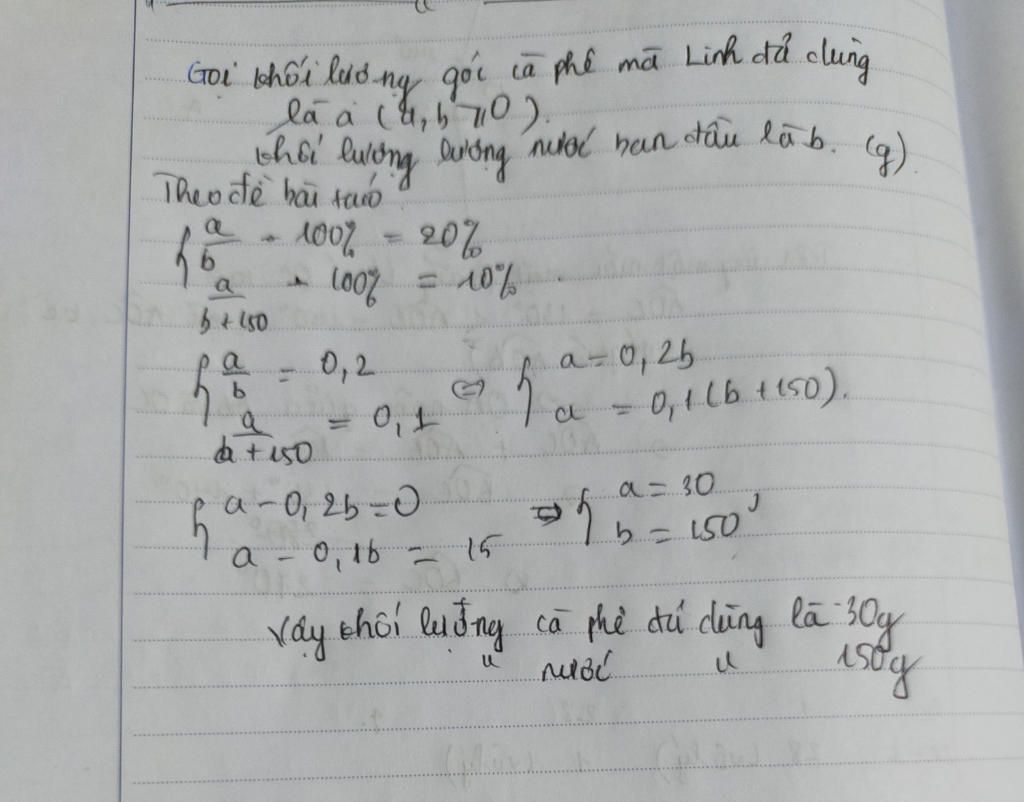 Gọi khối lượng gói cà phê mà Linh đã dùng
là a (a, b > 0).
khối lượng lượng nước ban đầu là b. (g)
Theo đề bài ta có
{ a/b · 100% = 20%
a/(b+150) · 100% = 10%
{ a/b = 0,2 <=> { a = 0,2b
a/(b+150) = 0,1 a = 0,1(b+150).
{ a - 0,2b = 0 => { a = 30
a - 0,1b = 15 b = 150
Vậy khối lượng cà phê đã dùng là 30g
" nước " 150g